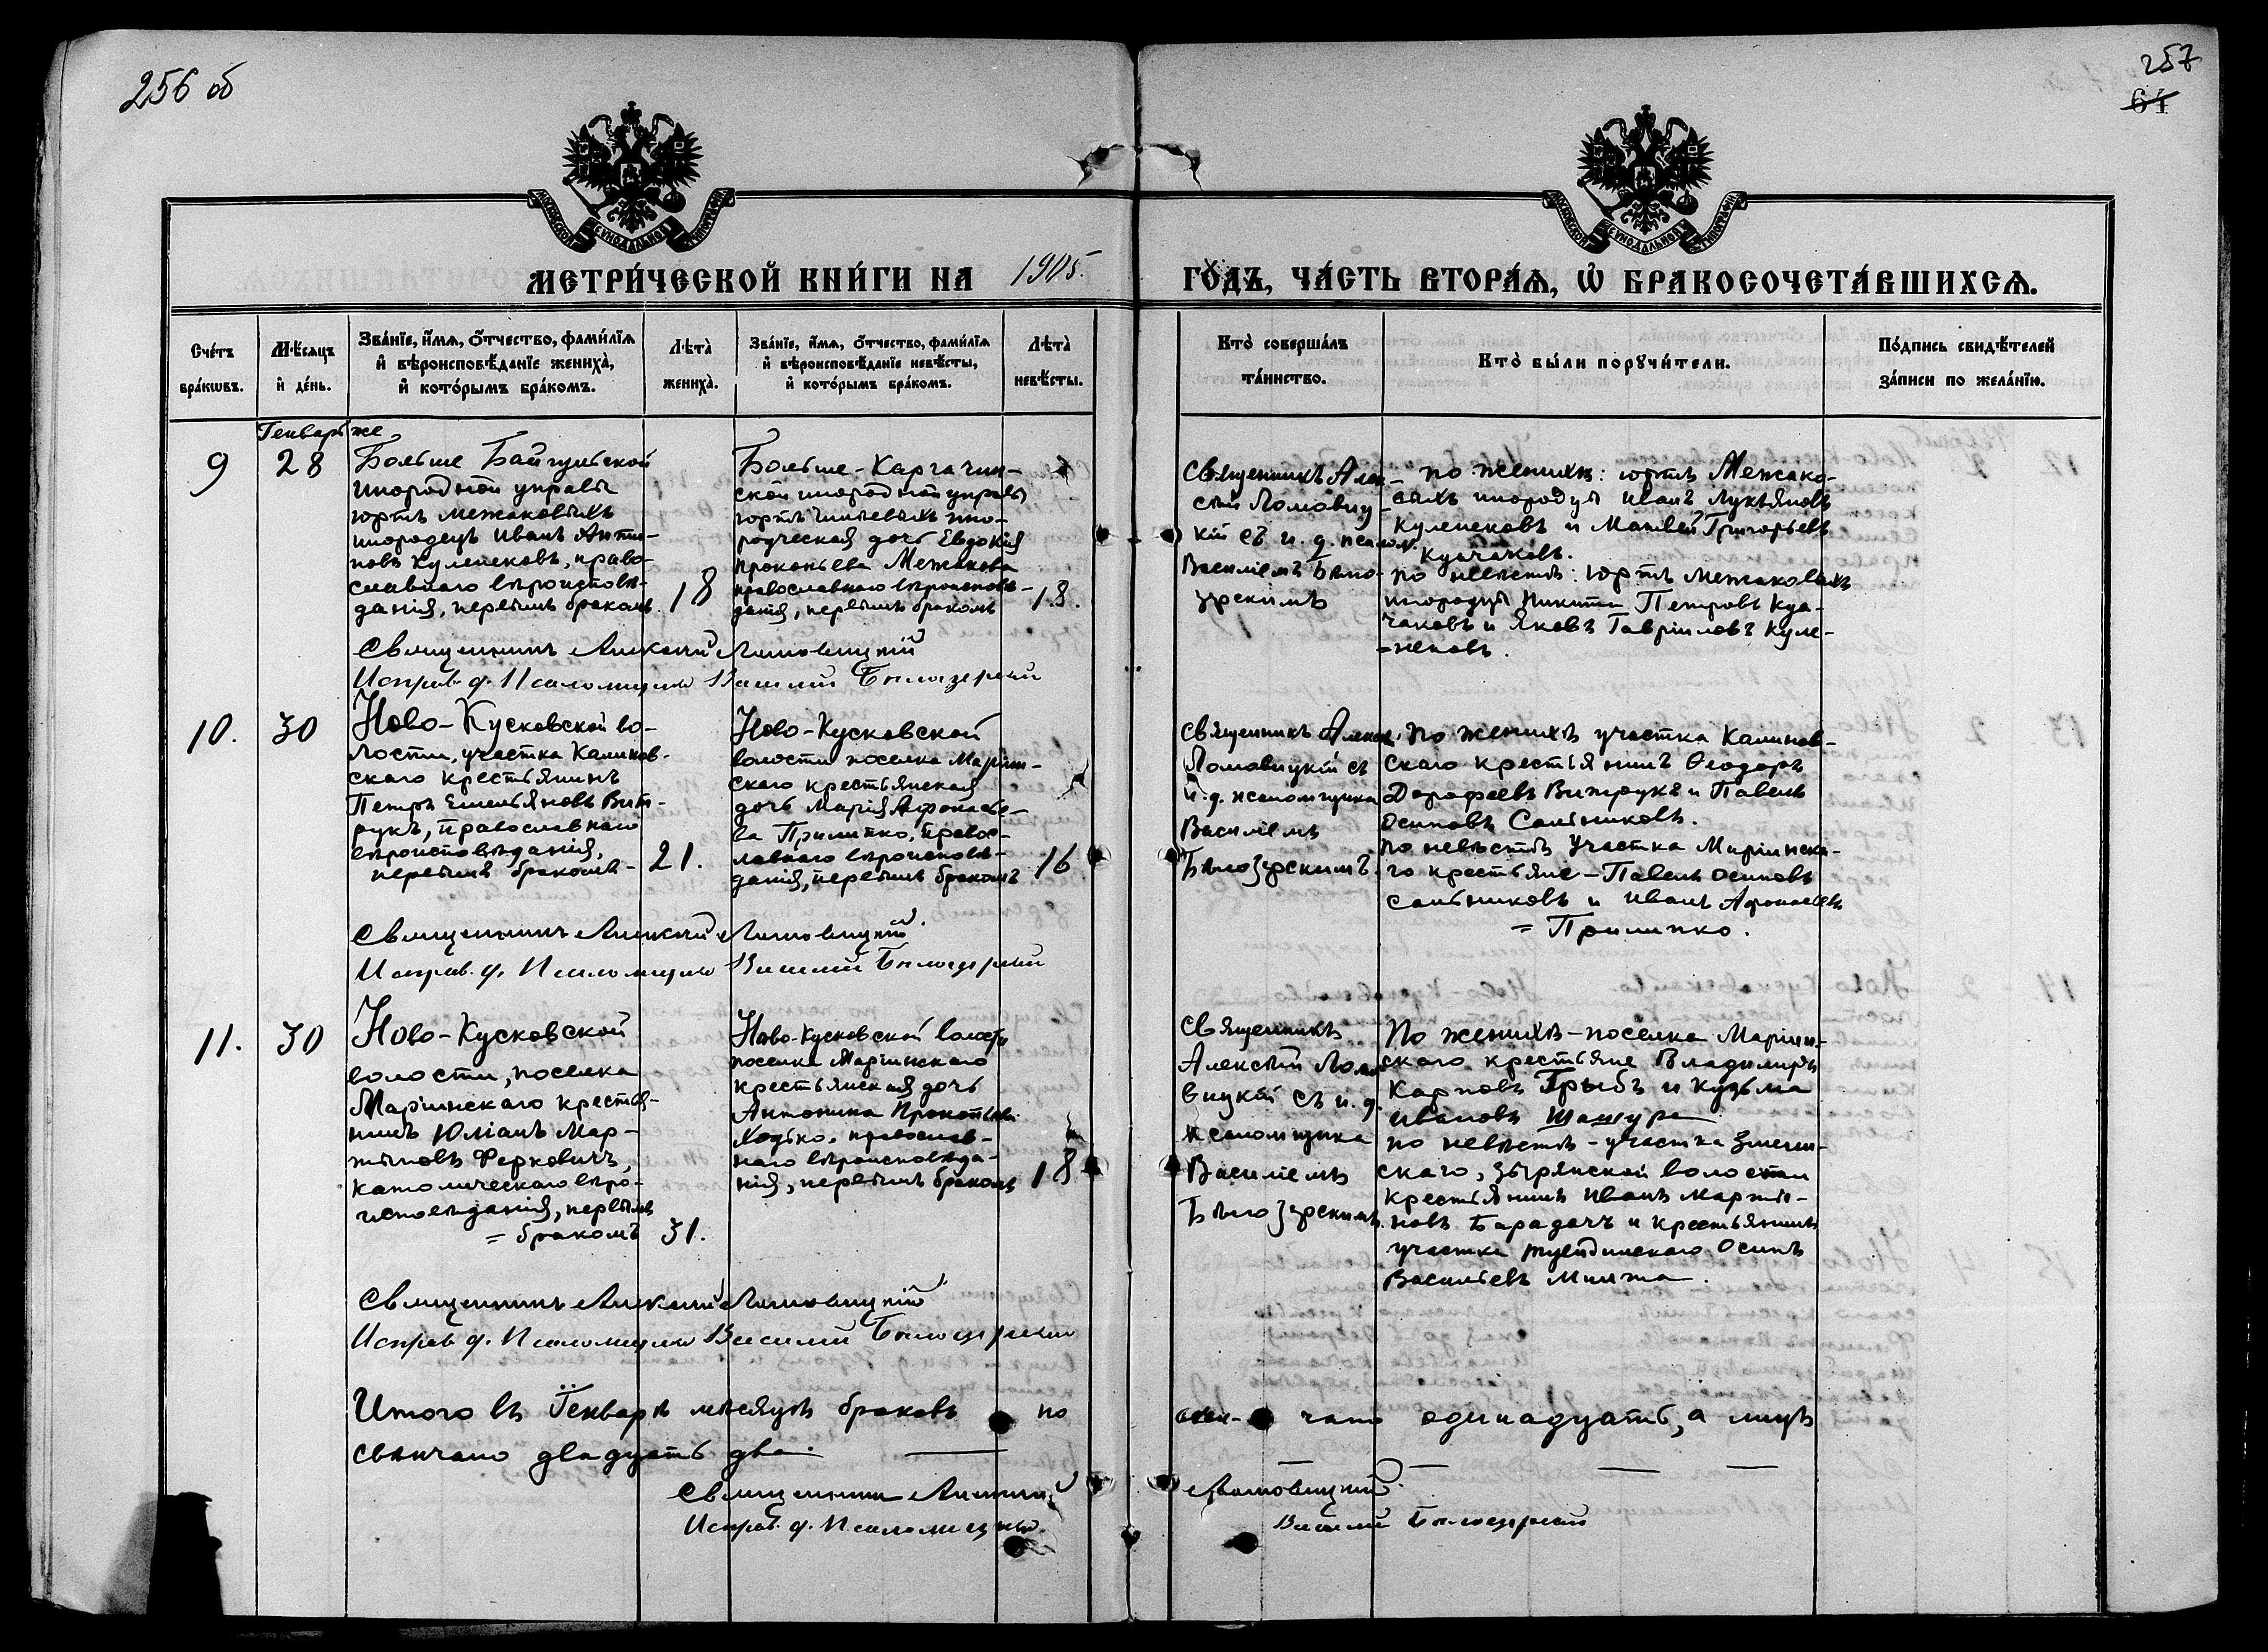 256 об
257
64
МОСКОВСКОЙ СѴНОДАЛЬНОЙ ТИПОГРАФІИ
МОСКОВСКОЙ СѴНОДАЛЬНОЙ ТИПОГРАФІИ
МЕТРИ́ЧЕСКОЙ КНИ́ГИ НА 1905. ГО́ДЪ, ЧА́СТЬ ВТОРА́Ѧ, Ѿ БРАКОСОЧЕТА́ВШИХСѦ.
Сче́тъ бра́кѡвъ.
Мѣ́сѧцъ и҆ де́нь.
Зва́нїе, и҆́мѧ, ѻ҆́тчество, фами́лїѧ
и҆ вѣроисповѣ́данїе жениха̀,
и҆ кото́рымъ бра́комъ.
Лѣта̀ жениха̀.
Зва́нїе, и҆́мѧ, ѻ҆́тчество, фами́лїѧ
и҆ вѣроисповѣ́данїе невѣ́сты,
и҆ кото́рымъ бра́комъ.
Лѣта̀ невѣ́сты.
Кто̀ соверша́лъ
та́инство.
Кто̀ бы́ли порꙋчи́тели.
По́дпись свидѣ́телей
за́писи по жела́нїю.
Генварь же
9
28
Больше Байгульской
инородной управы
юртъ Межаковыхъ
инородецъ Иванъ Анти-
повъ Куленековъ, право-
славнаго вѣроисповѣ-
данія, первымъ бракомъ.
18
Больше-Каргачин-
ской инородной управы
юртъ инo-
родческая дочь Евдокія
Прокопьева Межакова
православнаго вѣроисповѣ-
данія, первымъ бракомъ
18.
Священникъ Алек-
сѣй Ломовиц-
кій съ и. д. псалом.
Василіемъ Бѣло-
зерскимъ
по женихѣ: юртъ Межако-
выхъ инородцы Иванъ Лукьяновъ
Куленековъ и Матвей Григорьевъ
Куачаковъ.
по невѣстѣ: юртъ Межаковыхъ
инородцы Никита Петровъ Куа-
чаковъ и Яковъ Гавріиловъ Куле-
=нековъ.
Священникъ Алексій Ломовицкій
Исправ. д. Псаломщика Василій Бѣлозерскій
10.
30
Ново-Кусковской во-
лости, участка Калинов-
скаго крестьянинъ
Петръ Емельяновъ Вит-
рукъ, православнаго
вѣроисповѣданія,
первымъ бракомъ-
21.
Ново-Кусковской
волости поселка Маріин-
скаго крестьянская
дочь Марія Афонасье-
ва Прилипко, правос-
лавнаго вѣроисповѣ-
данія, первымъ бракомъ
16
Священникъ Алексѣй
Ломовицкій съ
и. д. псаломщика
Василіемъ
Бѣлозерскимъ.
По женихѣ участка Калинов-
скаго крестьянинъ Ѳеодоръ
Дорофеевъ Витрукъ и Павелъ
Осиповъ Сальниковъ.
по невѣстѣ участка Маріинска-
го крестьяне - Павелъ Осиповъ
Сальниковъ и Иванъ Афонасьевъ
= Прилипко.
Священникъ Алексій Ломовицкій.
Исправ. д. Псаломщика Василій Бѣлозерскій
11.
30
Ново-Кусковской
волости, поселка
Маріинскаго крестья-
нинъ Юліанъ Мар-
тыновъ Ферковичъ,
католическаго вѣро-
исповѣданія, первымъ
= бракомъ
31.
Ново-Кусковской волости
поселка Маріинскаго
крестьянская дочь
Антонина Прокопьева
Ходько, православ-
наго вѣроисповѣда-
нія, первымъ бракомъ
18
Священникъ
Алексѣй Ломо-
вицкій съ и. д.
псаломщика
Василіемъ
Бѣлозерскимъ.
По женихѣ - поселка Маріин-
скаго крестьяне Владимиръ
Карповъ Грыбъ и Кузьма
Ивановъ Шашура
по невѣстѣ - участка
скаго, Зырянской волости
крестьянинъ Иванъ Марты-
новъ Барадачъ и крестьянинъ
участка Туендинскаго Осипъ
Васильевъ Милта.
Священникъ Алексій Ломовицкій
Исправ. д. Псаломщика Василій Бѣлозерскій
Итого въ Генварѣ мѣсяцѣ браковъ по вѣн- чано одинадцать, а лицъ
свѣнчано двадцать два.
Священникъ Алексій Ломовицкій.
Исправ. д. Псаломщика Василій Бѣлозерскій